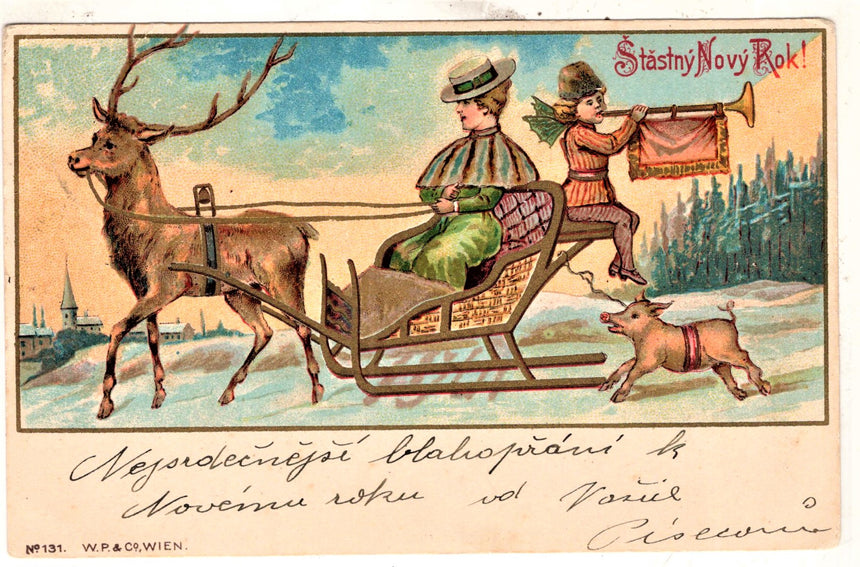 Štástný Nový Rok!
Nejsrdečnější blahopřání k
Novému roku od Vašich
No 131. W.P. & Co, WIEN.